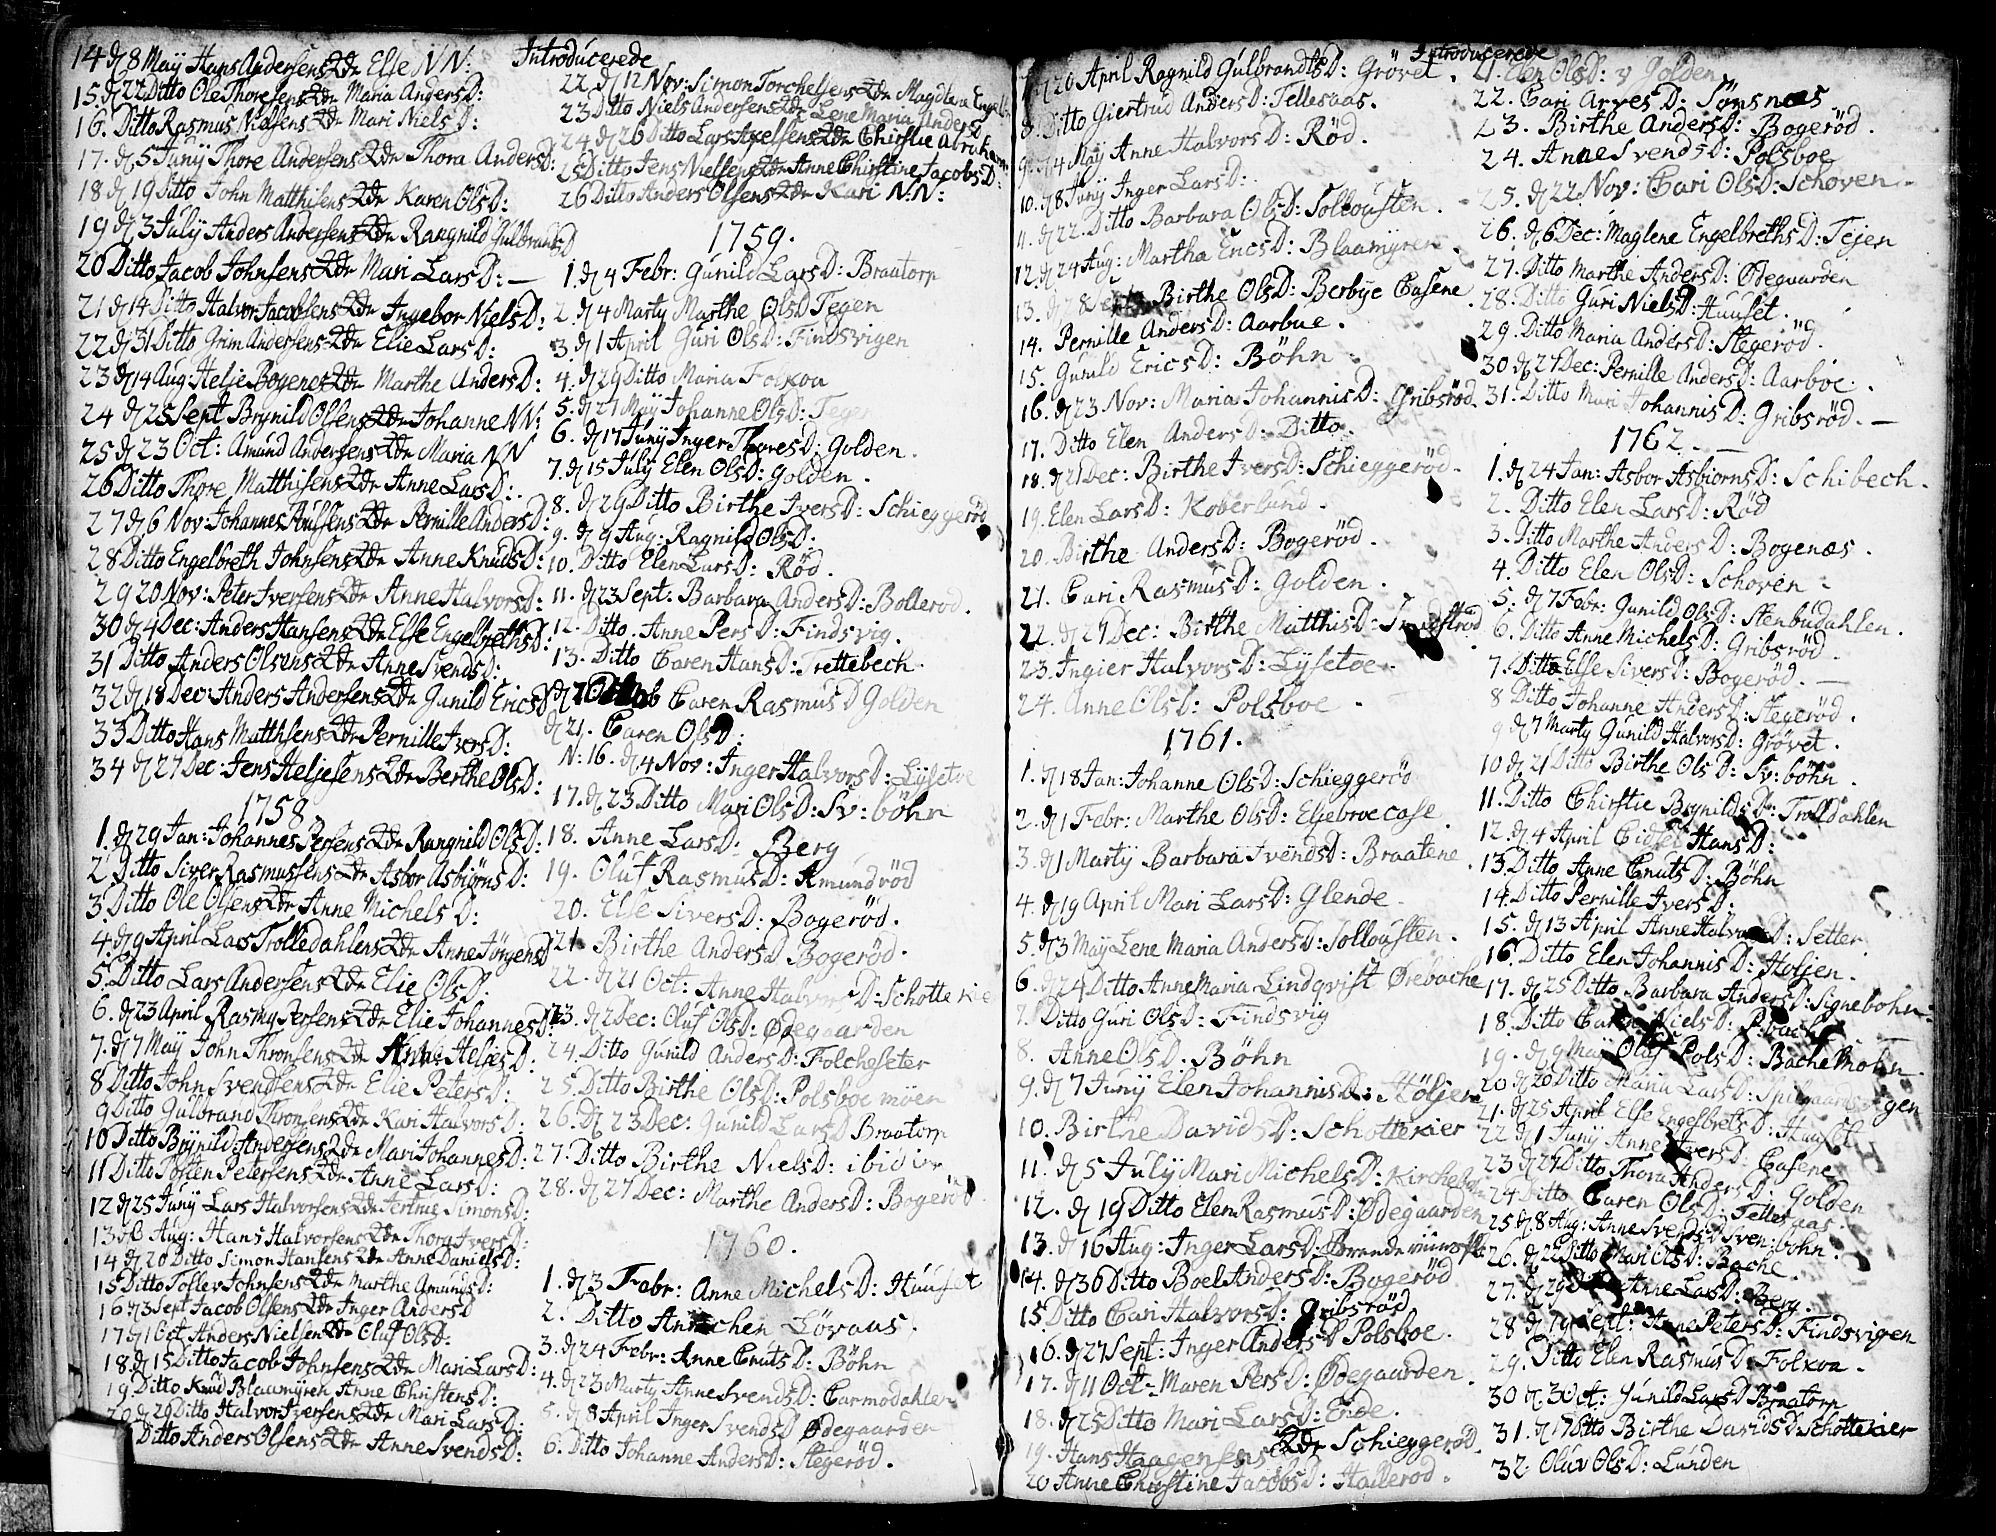 Introducerede
14 dj 8 Maÿ Hans Andersens Qde Else N N:
15. dj 22 Ditto Ole Thoresens Qde Maria AndersD:
16. Ditto Rasmus Nielsens Qde Mari NielsD:
17. dj 5 Junÿ Thore Andersens Qde Thora AndersD:
18 dj 19 Ditto John Matthisens Qde Karen OlsD:
19 dj 3 Julÿ Anders Andersens Qde Rangnild GulbrandsD
20 Ditto Jacob Johnsens Qde Mari LarsD:
21 dj 14 Ditto Halvor Jacobsens Qde Ingebor NielsD:
22 dj 31 Ditto Grim Andersens Qde Elie LarsD:
23 dj 14 Aug: Helje Bogenes Qde Marthe AndersD:
24 dj 25 Sept Brynild Olsens Qde Johanne NN:
25 dj 23 Oct: Amund Andersens Qde Maria NN
26 Ditto Thore Matthisens Qde Anne LarsD:
27 dj 6 Nov: Johannes Qde Pernille AndersD:
28 Ditto Engelbreth Johnsens Qde Anne KnudsD:
29 20 Nov: Peter Iversens Qde Anne HalvorsD:
30 dj 4 Dec: Anders Hansens Qde Else EngelbrethsD:
31 Ditto Anders Olsens Qde Anne SvendsD:
32 dj 18 Dec: Anders Andersens Qde Gunild EricsD
33 Ditto Hans Matthisens Qde Pernille IversD:
34 dj 27 Dec: Jens Heljesens Qde Berthe OlsD:
1758.
1. dj 29 Jan: Johannes Persens Qde Rangnild OlsD:
2 Ditto Siver Rasmussens Qde Asbor AsbiørnsD:
3 Ditto Ole Olsens Qde Anne MichelsD:
4. dj 9 April Lars Trolledahlens Qde Anne JörgensD
5. Ditto Lars Andersens Qde Elie OlsD:
6. dj 23 April Rasmus Persens Qde Elie JohannesD:
7. dj 7 Maÿ John Thronsens Qde Anne HeljesD.
8 Ditto John Svendsens Qde Elie PetersD:
9 Ditto Gulbrand Thronsens Qde Kari HalvorsD:
10 Ditto Brÿnild Andersens Qde Mari JohannesD:
11 Ditto Josten Petersens Qde Anne LarsD:
12 dj 25 Junÿ Lars Halvorsens Qde Jertrue SimonsD:
13 dj 6 Aug: Hans Halvorsens Qde Thora IversD:
14 dj 20 Ditto Simon Hansens Qde Anne DanielsD:
15 Ditto Toslev Johnsens Qde Marthe AmundsD:
16 dj 3 Sept Jacob Olsens Qde Inger AndersD
17 dj 1 Oct Anders Nielsens Qde Oluf OlsD:
18 dj 15 Ditto Jacob Johnsens Qde Mari LarsD:
19 Ditto Knud Blaamÿren Anne ChristensD:
20 dj 29 Ditto Halvor Iversens Qde Mari LarsD:
Ditto Anders Olsens Qde Anne SvendsD:
22. dj 12 Nov: Simon Torchelsens Qde Magdlena
23 Ditto Niels Andersens Qde Lene Maria AndersD
24 dj 26 Ditto Lars Axelsens Qde Chirstie
25 Ditto Jens Nielsens Qde Anne Chirstine JacobsD:
26 Ditto Anders Olsens Qde Kari N:N:
1759.
1. dj 4 Febr: Gunild LarsD: Braatorp
2. dj 4 Marty Marthe OlsD Tegen
3. dj 1 April Guri OlsD: Findsvigen
4. dj 29 Ditto Maria Folkoa
5. dj 27 Maÿ Johanne OlsD: Tegen
6. dj 17 Junÿ Inger ThoresD: Golden.
7. dj 15 Julÿ Elen OlsD: Golden.
8. dj 29 Ditto Birthe IversD: Schieggeröd
9. dj 9 Aug: Ragnild OlsD.
10. Ditto Elen LarsD: Röd.
11. dj 23 Sept: Barbara AndersD: Bolleröd.
12. Ditto. Anne PersD: Findsvig.
13. Ditto Caren HansD: Trettebech.
Caren RasmusD Golden
dj 21. Caren OlsD:
N: 16. dj 4 Nov: Inger HalvorsD: Lÿsetoe
17. dj 23 Ditto Mari OlsD: Sv: böhn
18. Anne LarsD: Berg
19. Oluf RasmusD: Amundröd
20. Else SiversD: Bogeröd.
21. Birthe AndersD Bogeröd.
22. dj 21 Oct: Anne HalvorsD: Schottekier
23. dj 2 Dec: Oluf OlsD: Ødegaarden
24. Ditto Gunild AndersD: Folcheseter
25. Ditto Birthe OlsD: Polsboe moen
26. dj 23 Dec: Gunild LarsD Braatorp
27. Ditto Birthe NielsD: ibidem
28. dj 27 Dec: Marthe AndersD: Bogeröd
1760.
1. dj 3 Febr: Anne MichelsD: Huuset
2. Ditto Annichen Lövaas.
3. dj 24 Febr: Anne CnutsD: Böhn
4. dj 23 Marty Anne SvendsD: Carmodahlen
5. dj 8 April Inger SvendsD Ødegaarden
6. Ditto Johanne AndersD: Stegeröd.
Introducerede
7. dj 20 April Ragnild GulbrandtsD: Grövet.
8. Ditto Giertrud AndersD: Tellesaas.
9. dj 4 Maÿ Anne HalvorsD: Röd.
10. dj 8 Junÿ Inger LarsD:
11. dj 22. Ditto Barbara OlsD: Sollousten.
12. dj 24 Aug: Martha EricsD: Blaamÿren
13. Birthe OlsD: Berbÿe Casene
14. Pernille AndersD: Aarbue.
15. Gunild EricsD: Böhn
16. dj 23 Nov: Maria JohannisD: Gribsröd.
17. Ditto Elen AndersD: Ditto.
18. dj 21 Dec: Birthe IversD: Schieggeröd.
19. Elen LarsD: Koberlund.
20. Birthe AndersD: Bogeröd.
21. Cari RasmusD: Golden.
22. dj 27 Dec: Birthe MatthisD:
23. Ingier HalvorsD: Lÿsetoe.
24. Anne OlsD: Polsboe.
1761.
1. dj 18 Jan: Johanne OlsD: Schieggeröd
2. dj 1 Febr: Marthe OlsD: Eljebroe case.
3. dj 1 Martÿ Barbara SvendsD: Braatene
4. dj 19 April Mari LarsD: Glende.
5. dj 3 Maÿ Lene Maria AndersD: Sollousten.
6. dj 24 Ditto Anne Maria Lindqvist Ørebache
7. Ditto Guri OlsD: Findsvig
8. Anne OlsD. Böhn
9. dj 7 Junÿ Elen JohannisD: Höljen
10. Birthe DavidsD: Schottekier
11. dj 5 Julÿ Mari MichelsD: Kircheböen
12. dj 19 Ditto Elen RasmusD: Ødegaarden
13. dj 16 Aug: Inger LarsD:
14. dj 30 Ditto Boel AndersD: Bogeröd
15 Ditto Cari HalvorsD: Gribsröd
16. dj 27 Sept: Inger AndersD Polsboe.
17. dj 11 Oct- Maren PersD: Ødegaarden.
18. dj 25 Ditto Mari LarsD: Ende.
19. Hans Haagensens Qde Schieggeröd
20 Anne Christine JacobsD: Halleröd.
21. Elen OlsD: v Golden
22. Cari ArvesD: Sömsnæs
23. Birthe AndersD: Bogeröd.
24. Anne SvendsD: Polsboe
25. dj 22. Nov: Cari OlsD: Schoven.
26. dj 6 Dec: Maglene EngelbrethsD: Tejen
27. Ditto Marthe AndersD: Ødegaarden
28. Ditto Guri NielsD: Huuset.
29. Ditto Maria AndersD: Stegeröd.
30 dj 27 Dec: Pernille AndersD: Aarboe.
31. Ditto Mari JohannisD: Gribsröd.
1762.
1. dj 24 Jan: Asbor AsbiornsD: Schibech.
2. Ditto Elen LarsD: Röd
3. Ditto Marthe AndersD: Bogenæs.
4. Ditto Elen OlsD: Schoven
5. dj 7 Febr: Gunild OlsD: Stenbudahlen.
6. Ditto Anne MichelsD: Gribsröd.
7. Ditto Else SiversD: Bogeröd.
8 Ditto Johanne AndersD: Stegeröd.
9 dj 7 Marty Gunild HalvorsD: Grövet.
10 dj 21 Ditto Birthe OlsD: Sv: böhn.
11. Ditto Chirstie BrynildsD: Trolldahlen
12. dj 4 April HansD:
13. Ditto Anne CnutsD: Böhn
14. Ditto Pernille IversD.
15. dj 13 April Anne HalvorsD: Setter
16. Ditto Elen JohannisD: Holjen.
17. dj 25 Ditto Barbara AndersD: Signebohn
18. Ditto Caren NielsD:
19. dj 9 Maÿ Oluf PolsD: Bache Mohn
20 dj 20 Ditto Maria LarsD:
21. dj 25 April Else EngelbretsD: Huuset
22 dj 1 Junÿ Anne IversD: Casene
23 dj 27 Ditto Thora AndersD: Golden
24 Ditto Caren OlsD: Tellesaas.
25 dj 8 Aug: Anne SvendsD Sven: bohn.
26. dj 22 Ditto Mari OlsD: Bache.
27. dj 29 Ditto Anne LarsD: Berg.
28 dj 19 Sept: Anne PetersD: Findsvigen
29. Ditto Elen RasmusD: Folkoa.
30 dj 3 Oct: Gunild LarsD Braatorp
31. dj 17 Ditto Birthe DavidsD Schottekier
32. Oluv OlsD: Lunden